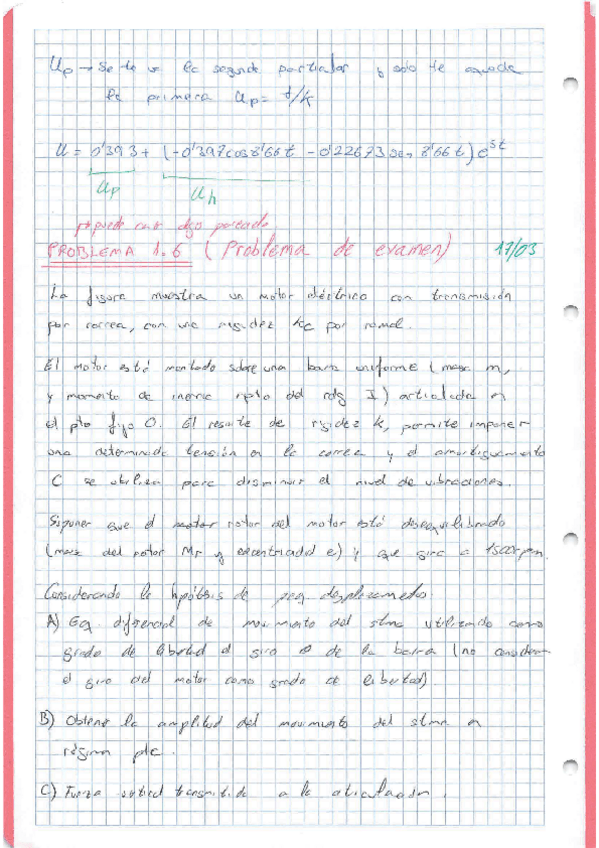 Up → Se te va la segunda particular y solo te queda
la primera Up = t/k
U = 0'393 + (-0'397cos8'66t - 0'22673sen 8'66t)e^5t
Up
Uh
↱ puede caer algo parecido
PROBLEMA 1.6 (Problema de examen) 17/03
La figura muestra un motor eléctrico con transmisión
por correa, con una rigidez Kc por ramal.
El motor está montado sobre una barra uniforme (masa m,
y momento de inercia rpto del cdg I) articulada en
el pto fijo O. El resorte de rigidez K, permite imponer
una determinada tensión en la correa y el amortiguamiento
C se utiliza para disminuir el nivel de vibraciones.
Suponer que el rotor del motor está desequilibrado
(masa del rotor Mr y excentricidad e) y que gira a 1500rpm
Considerando la hipótesis de peq. desplazamientos.
A) Eq. diferencial de movimiento del stma utilizando como
grado de libertad el giro θ de la barra (no consideran
el giro del motor como grado de libertad).
B) Obtener la amplitud del movimiento del stma en
régimen pte.
C) Fuerza vertical transmitida a la articulación.